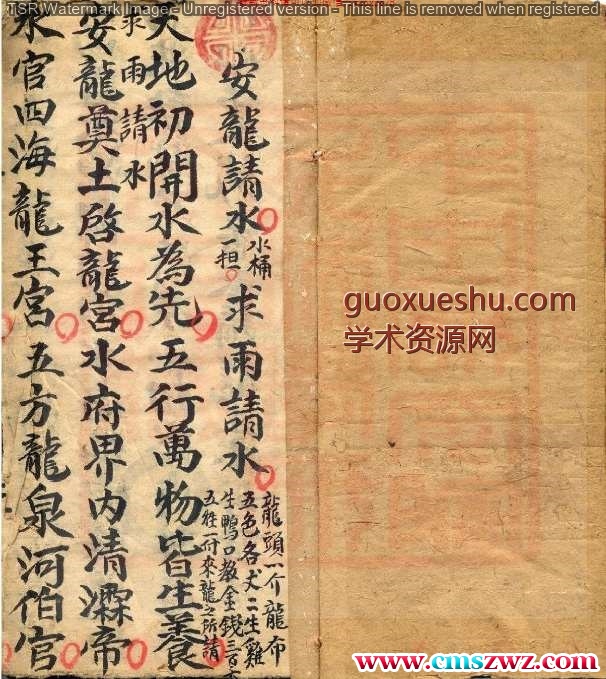 TSR Watermark Image - Unregistered version - This line is removed when registered
安龍請水 水桶一担 求雨請水
龍頭一介龍布
五色各
二生雞
生鴨口教金錢三百
五牲一付來龍之所請
天地初開水為先五行萬物皆生養
求雨請水
安龍奠土啓龍宮水府界内清
帝
水官四海龍王宮五方龍泉河伯官
guoxueshu.com
学术资源网
www.cmszwz.com